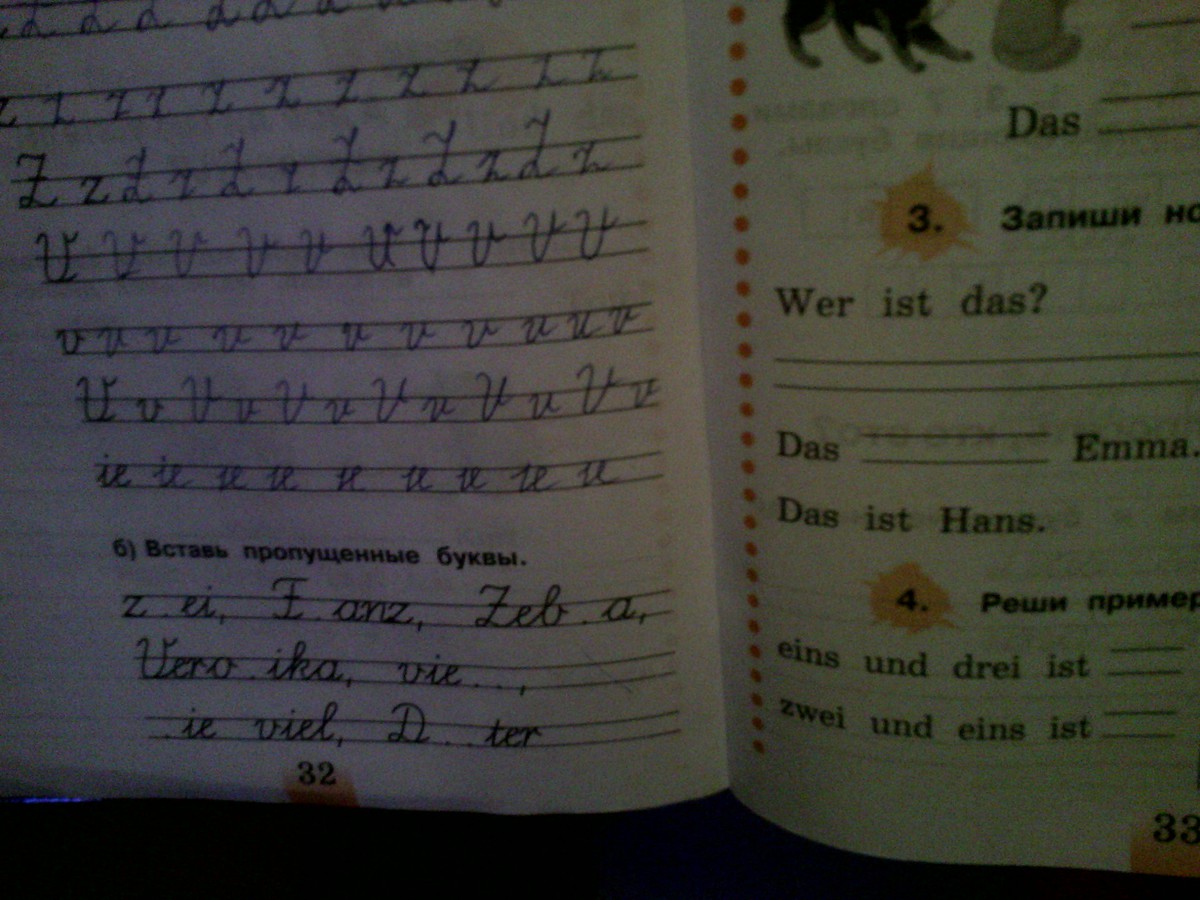 z z z z z z z z z z
Z z Z z Z z Z z Z z Z z
V V V V V V V V V V
v v v v v v v v v v v
V v V v V v V v V v V v
ie ie ie ie ie ie ie ie ie
б) Вставь пропущенные буквы.
z ei, F anz, Zeb a,
Vero ika, vie ,
ie viel, D ter
32
Das
3. Запиши
Wer ist das?
Das Emma.
Das ist Hans.
4. Реши
eins und drei ist
zwei und eins ist
33